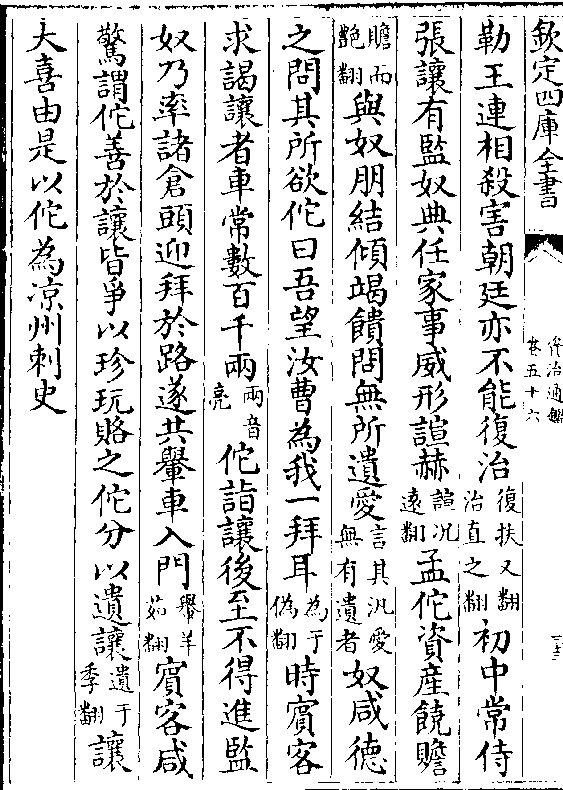 欽定四庫全書
資治通鑑
卷五十六
勒王連相殺害朝廷亦不能復治復扶又翻治直之翻初中常侍
張讓有監奴典任家事威形諠赫諠况遠翻孟佗資産饒贍
贍而艶翻與奴朋結傾竭饋問無所遺愛言其汎愛無有遺者奴咸德
之問其所欲佗曰吾望汝曹為我一拜耳為于偽翻時賓客
求謁讓者車常數百千兩兩音亮佗詣讓後至不得進監
奴乃率諸倉頭迎拜於路遂共轝車入門轝羊茹翻賓客咸
驚謂佗善於讓皆爭以珍玩賂之佗分以遺讓遺于季翻讓
大喜由是以佗為凉州刺史